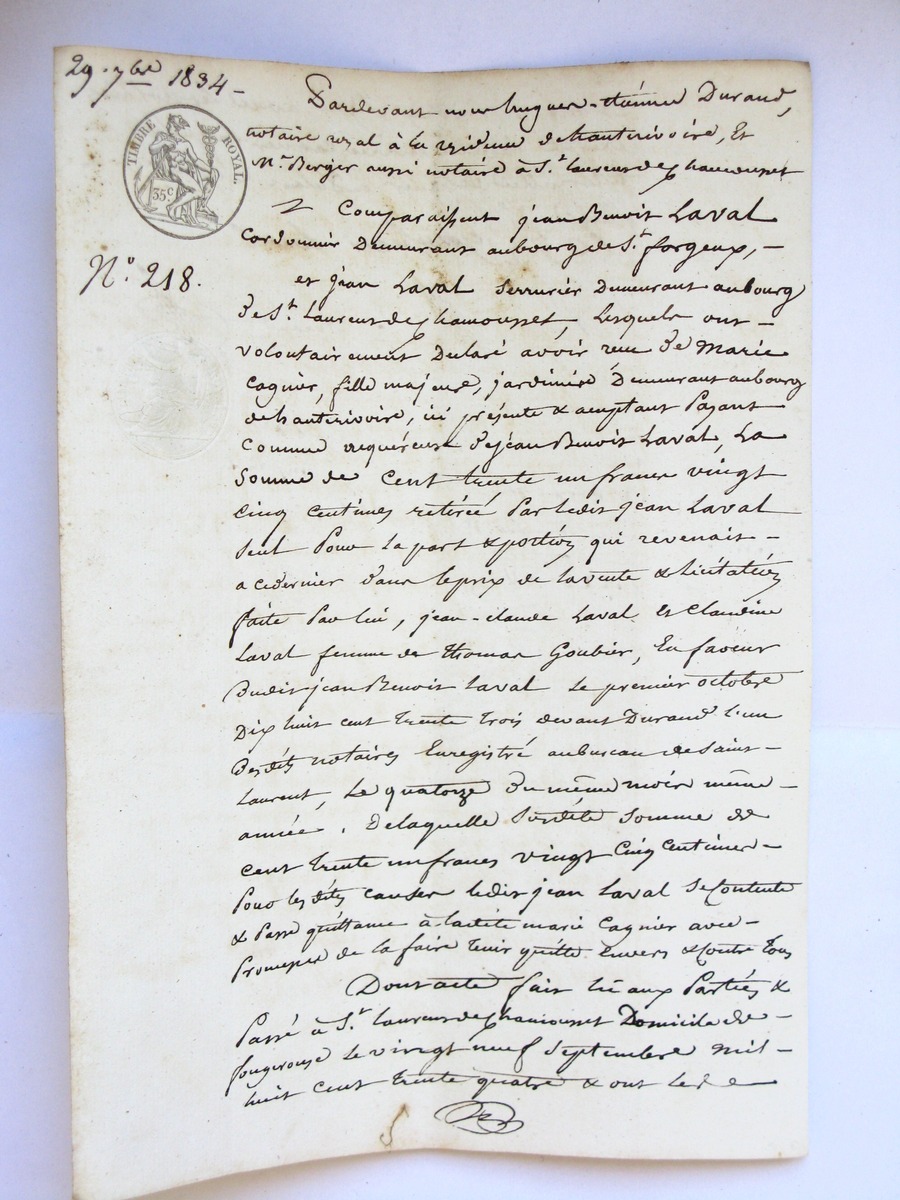 29. 7bre 1834 -
TIMBRE ROYAL.
35c
N.o 218.
Pardevant nous hugues-étienne Durand,
notaire royal à la résidence dehauterivoire, Et
Mr. Berger aussi notaire à St. Laurent de Chamousset
Comparaissent jean Benoit Laval
Cordonnier Demeurant aubourg de St. forgeux, -
et jean Laval Serrurier Demeurant aubourg
de St. Laurent de Chamousset, Lesquels ont -
volontairement Declaré avoir reçu de Marie
Cagnier, fille majeure, jardinière Demeurant aubourg
dehauterivoire, ici présente & acceptant Payant
Comme de jean Benoit Laval, La
Somme de Cent trente un francs vingt
Cinq Centimes retirée Par ledit jean Laval
Seul Pour la part & portion qui revenait -
a cedernier dans leprix de lavente & licitation
faite Par lui, jean-claude Laval et Claudine
Laval femme de thomas Goubier, En faveur
Dudit jean Benoit Laval Le premier octobre
Dix huit cent trente trois devant Durand l'un
Desdits notaires Enregistré aubureau de Saint -
Laurent, Le quatorze du même mois même -
année. Delaquelle Susdite Somme de
cent trente un francs vingt Cinq Centimes -
Pour lesdites causes ledit jean Laval Se Contente
& Passe quittance à ladite marie Cagnier avec -
Promesse de la faire tenir quitte envers & Contre tous
Dont acte fait lu aux Parties &
Passé à St. Laurent de Chamousset Domicile de -
fougerouse Le vingt neuf Septembre mil -
huit cent trente quatre & ont le